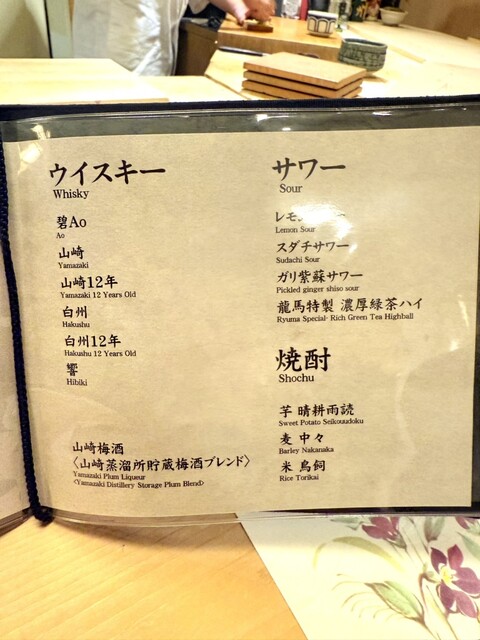 ウイスキー
Whisky
碧Ao
Ao
山崎
Yamazaki
山崎12年
Yamazaki 12 Years Old
白州
Hakushu
白州12年
Hakushu 12 Years Old
響
Hibiki
山崎梅酒
〈山崎蒸溜所貯蔵梅酒ブレンド〉
Yamazaki Plum Liqueur
<Yamazaki Distillery Storage Plum Blend>
サワー
Sour
レモ
Lemon Sour
スダチサワー
Sudachi Sour
ガリ紫蘇サワー
Pickled ginger shiso sour
龍馬特製 濃厚緑茶ハイ
Ryuma Special- Rich Green Tea Highball
焼酎
Shochu
芋 晴耕雨読
Sweet Potato Seikouudoku
麦 中々
Barley Nakanaka
米 鳥飼
Rice Torikai